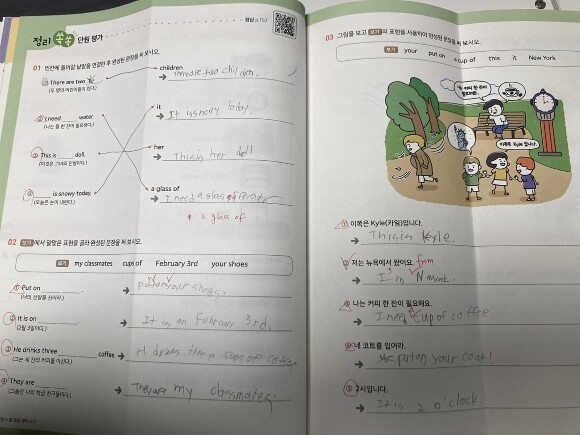 정리 쏙쏙 단원 평가
01 빈칸에 들어갈 낱말을 연결한 후 완성된 문장을 써 보시오.
① There are two
(두 명의 어린이들이 있다.)
children
There are two children.
② I need water.
(나는 물 한 잔이 필요하다.)
it
It is snowy today.
③ This is doll.
(이것은 그녀의 인형이다.)
her
This is her doll
④ is snowy today.
(오늘은 눈이 내린다.)
a glass of
I need a glass of
a glass of
02 보기 에서 알맞은 표현을 골라 완성된 문장을 써 보시오.
보기 my classmates cups of February 3rd your shoes
① Put on
(너의 신발을 신어라.)
put on your shoes.
② It is on
(2월 3일이다.)
It is on February 3rd.
③ He drinks three coffee
(그는 세 잔의 커피를 마신다.)
H drinks three cups of coffee
④ They are
(그들은 나의 학급 친구들이다.)
They are my classmates.
03 그림을 보고 보기 의 표현을 사용하여 완성된 문장을 써 보시오.
보기 your put on cup of this it New York
이쪽은 Kyle 입니다.
① 이쪽은 Kyle(카일)입니다.
This is kyle.
② 저는 뉴욕에서 왔어요. from
I'm
③ 나는 커피 한 잔이 필요해요.
I need cup of coffee.
④ 네 코트를 입어라.
put on your coat!
⑤ 2시입니다.
It is 2 o'clock.